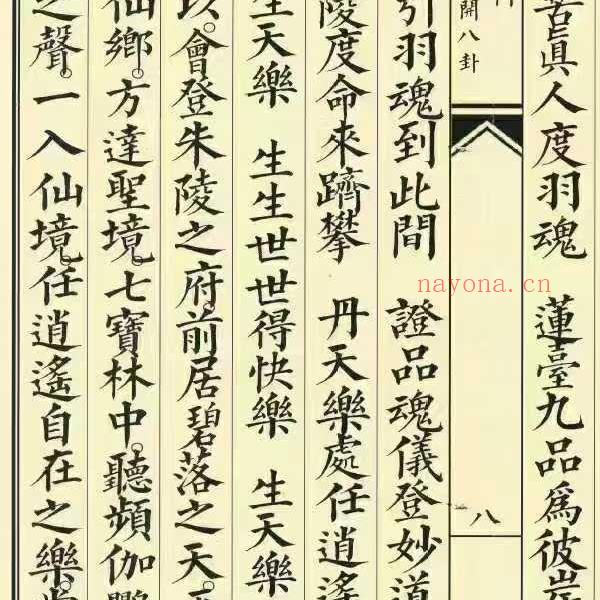 苦眞人度羽魂　蓮臺九品爲彼岸
開八卦
八
引羽魂到此間　證品魂儀登妙道
陵度命來躋攀　丹天樂處任逍遙
生天樂　生生世世得快樂　生天樂
會登朱陵之府。前居碧落之天。
仙鄉。方達聖境。七寶林中。聽頻伽
之聲。一入仙境。任逍遙自在之樂。
nayona.cn